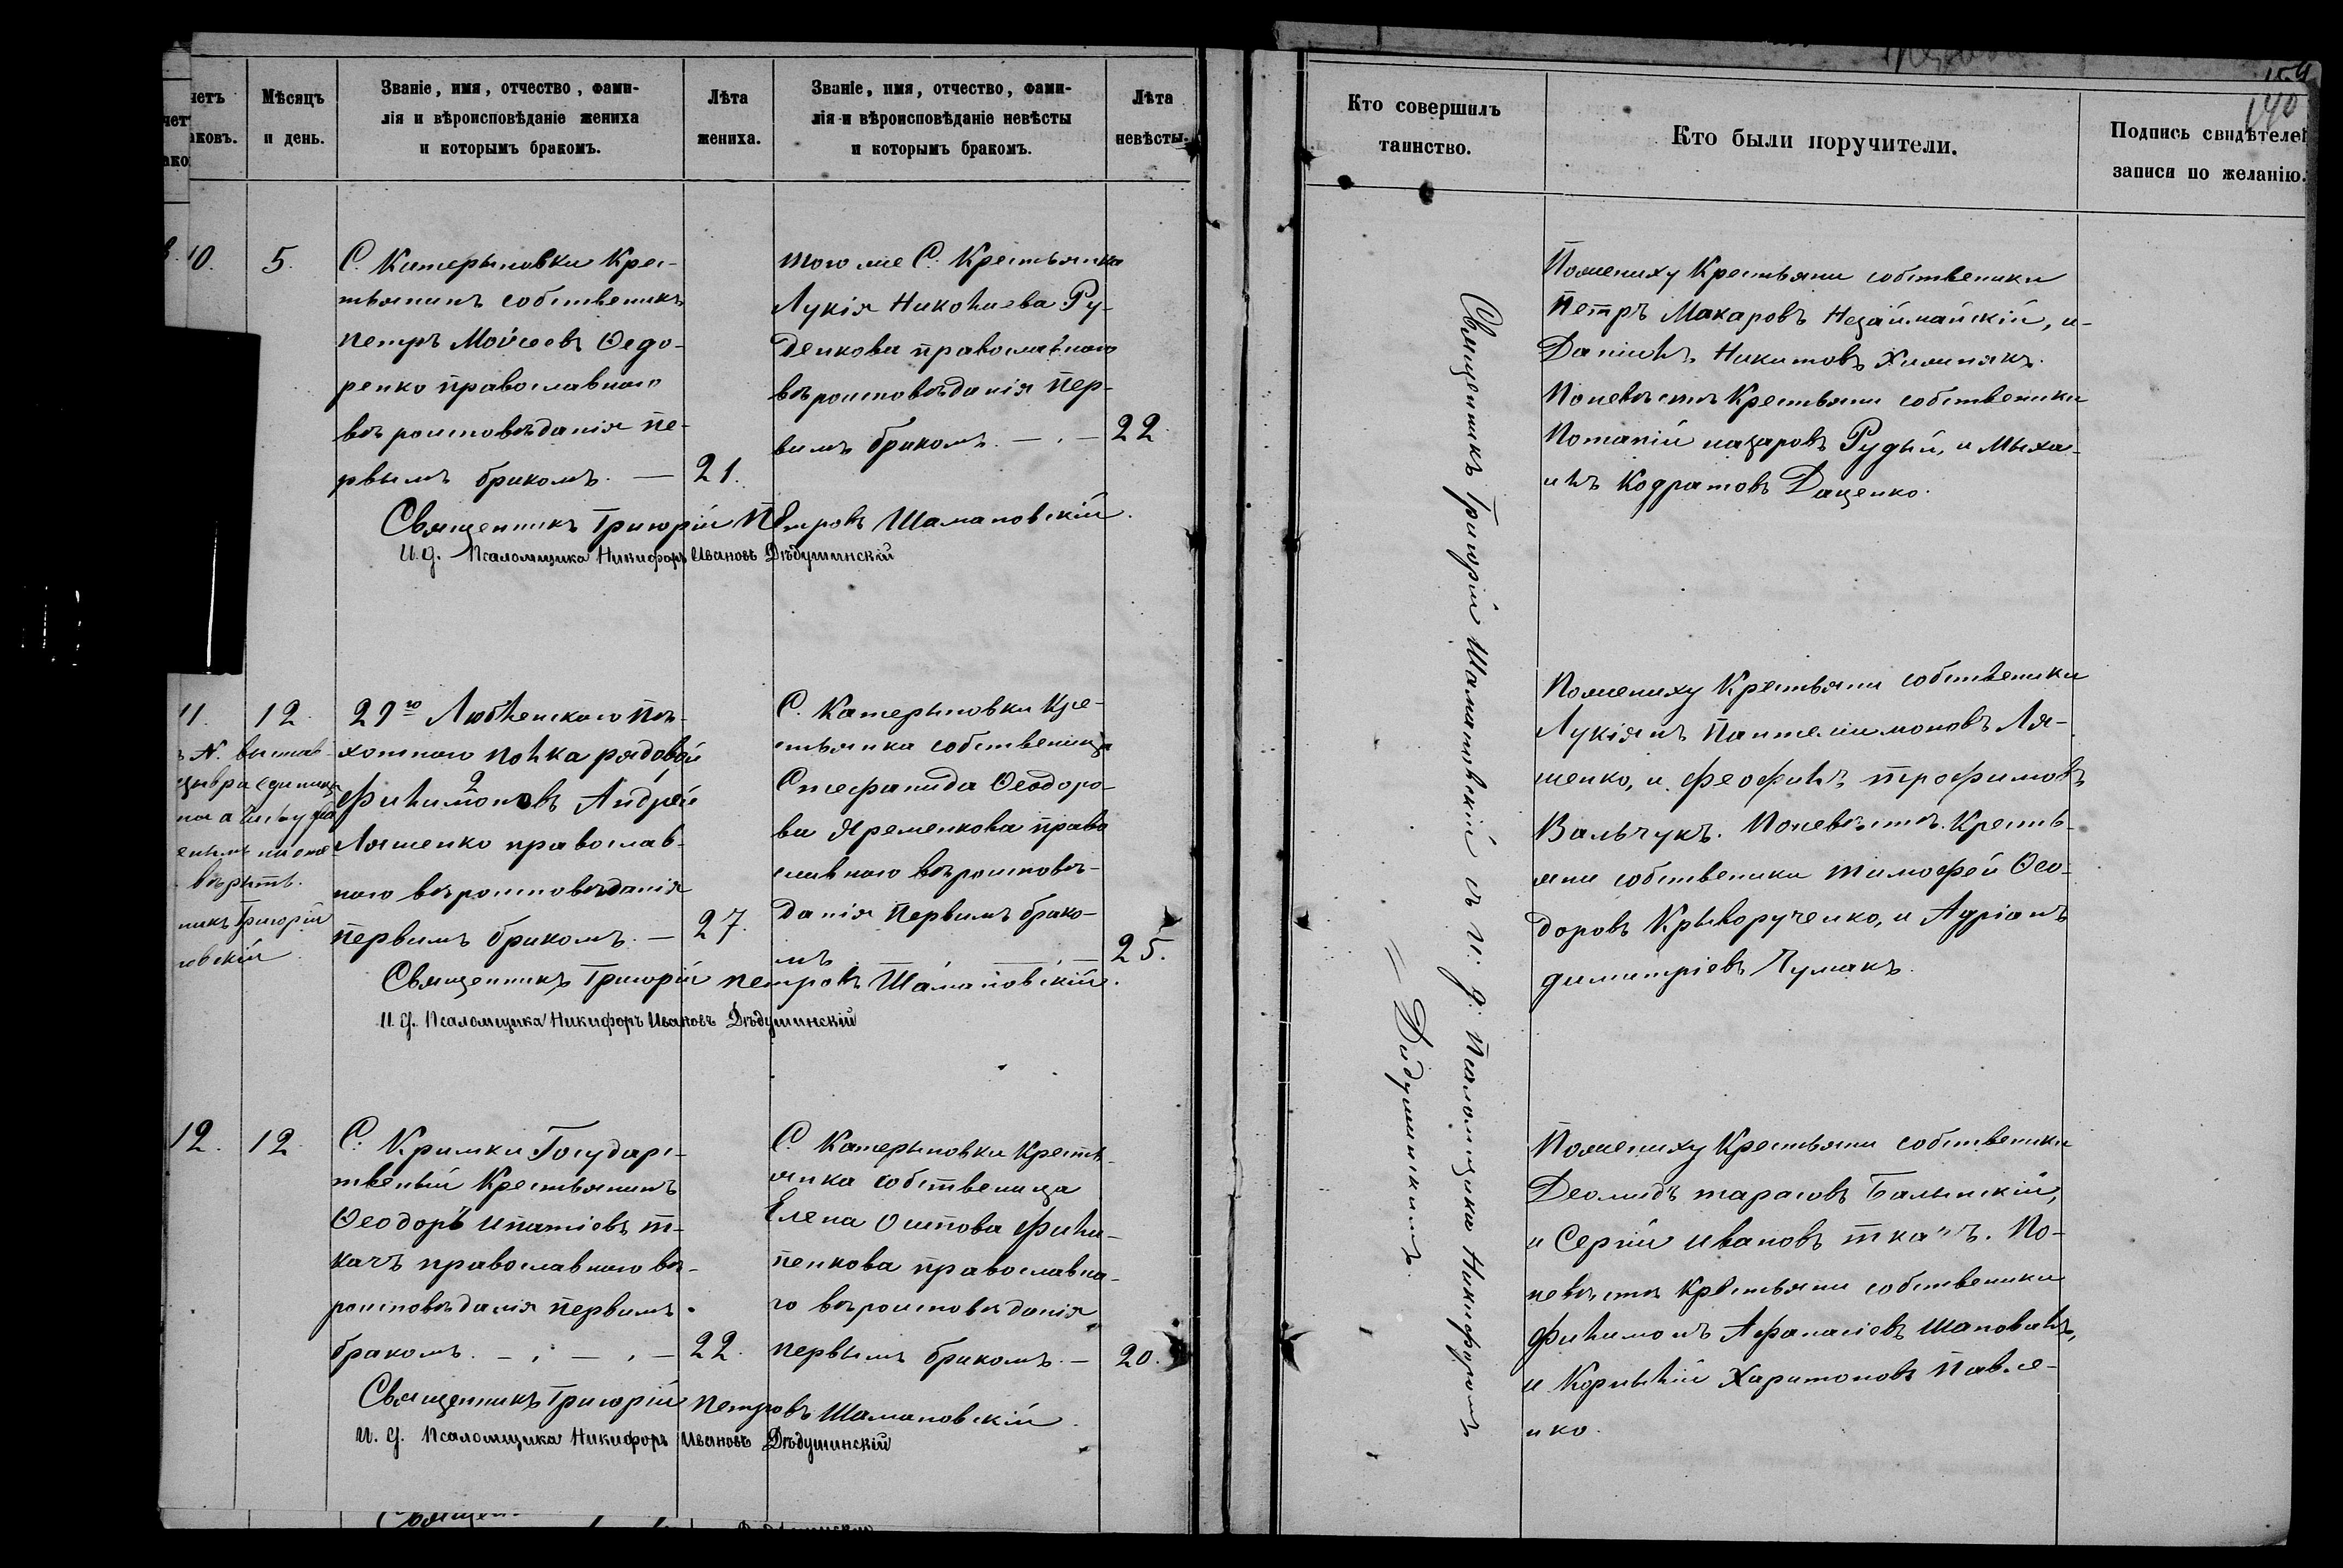 четъ
аковъ.
Мѣсяцъ
и день.
Званіе, имя, отчество, фами-
лія и вѣроисповѣданіе жениха
и которымъ бракомъ.
Лѣта
жениха.
Званіе, имя, отчество, фами-
лія и вѣроисповѣданіе невѣсты
и которымъ бракомъ.
Лѣта
невѣсты.
10.
5.
С. Катерыновки Крес-
тьянинъ собственикъ
петръ Мойсеевъ Ѳедо-
ренко православного
вѣроисповѣданія пе-
рвымъ бракомъ. —
21.
того же С. Крестьянка
Лукія Николаева Ру-
денкова православного
вѣроисповѣданія пер-
вимъ бракомъ. — . —
22
Священникъ Григорій Петровъ Шамановскій.
И. д. Псаломщика Никифоръ Ивановъ Дѣдушинскій
11.
12.
29го Любленского пѣ-
хотного полка рядовой
Филимоновъ Андрей
Ляшенко православ-
ного вѣроисповѣданія
первимъ бракомъ. —
27.
С. Катерыновки Кре-
стьянка собственица
Стефанида Ѳеодоро-
ва Яременкова право
славного вѣроисповѣ-
данія первимъ брако-
мъ
25.
Священникъ Григорій петровъ Шамановскій.
И. д. Псаломщика Никифоръ Ивановъ Дѣдушинскій
вѣрить.
никъ Григорій
новскій
12.
12
С. Кримки Государс-
твеный Крестьянинъ
Ѳеодоръ Ипатіевъ т-
качъ православного вѣ-
роисповѣданія первимъ
бракомъ. — . — . —
22.
С. Катерыновки Кресть-
янка собственица
Елена Осипова Фили-
пенкова православна-
го вѣроисповѣданія
первымъ бракомъ. —
20.
Священникъ Григорій петровъ Шамановскій
И. д. Псаломщика Никифоръ Ивановъ Дѣдушинскій
140
Кто совершилъ
таинство.
Кто были поручители.
Подпись свидѣтелей
записи по желанію.
Священникъ Григорій Шамановскій съ и. д. Псаломщика Никифоромъ
= Дидушинскимъ.
Пожениху Крестьяни собственики
Петръ Макаровъ Незаймайскій, и-
Даніилъ Никитовъ Химнякъ.
Поневѣстѣ Крестьяни собственики
Потапій назаровъ Рудый, и Мыха-
илъ Кодратовъ Даценко.
Пожениху Крестьяни собственики
Лукіянъ Пантелимоновъ Ля-
шенко, и феофилъ трофимовъ
Вальчукъ. Поневѣстѣ Кресть-
яни собственики тимофей Ѳео-
доровъ Крыворученко, и Адріанъ
димитріевъ Чумакъ.
Пожениху Крестьяни собственики
Деомидъ тарасовъ Балынскій,
и Сергій ивановъ ткачъ. По-
невѣстѣ Крѣстьяни собственики
Филимонъ Афанасіевъ Шаповалъ,
и Корнылій Харитоновъ Павле-
нко.